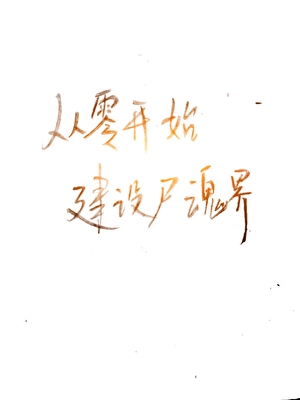 从零开始
建设尸魂界